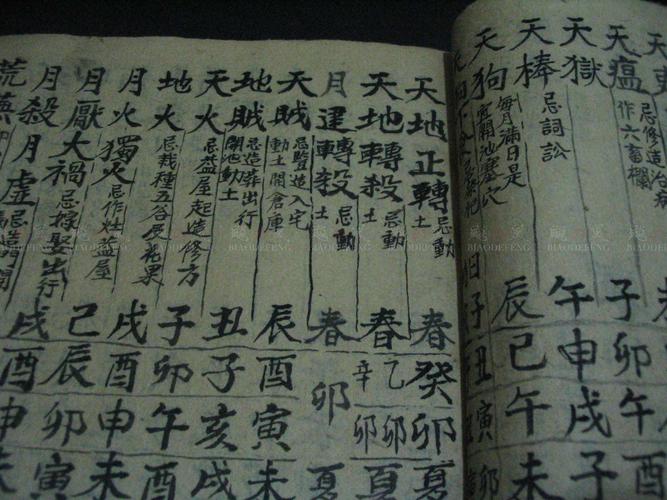 天瘟 忌修造治病 作六畜欄 子卯午
天獄 忌詞訟 午申戌
天棒 辰巳午未
天狗 每月滿日是 宜開池塞穴 子丑寅卯
天地正轉 忌動土 春癸卯夏
天地轉殺 忌動土 春乙卯辛卯夏
月建轉殺 忌動土 春卯夏
天賊 忌豎造入宅 動土開倉庫 辰酉寅未
地賊 忌造葬出行 開池動土 丑子亥戌
天火 忌蓋屋起造修方 子卯午酉
地火 忌栽種五谷及花果 戌酉申未
月火獨火 忌作灶蓋屋 巳辰卯寅
月厭大禍 忌嫁娶出行 戌酉申未
月殺月虛
荒蕪
BIAODEFENG BIAODEFENG BIAODEFENG BIAODEFENG BIAODEFENG